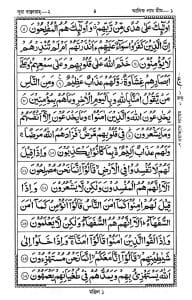 সূরা বাক্বারাহ—২ ৪ আলিফ লাম মীম—১
أُولَٰئِكَ عَلَىٰ هُدًى مِّن رَّبِّهِمْ وَأُولَٰئِكَ هُمُ الْمُفْلِحُونَ
إِنَّ الَّذِينَ كَفَرُوا سَوَاءٌ عَلَيْهِمْ ءَأَنذَرْتَهُمْ أَمْ لَمْ
تُنذِرْهُمْ لَا يُؤْمِنُونَ خَتَمَ اللَّهُ عَلَىٰ قُلُوبِهِمْ وَعَلَىٰ سَمْعِهِمْ وَعَلَىٰ
أَبْصَارِهِمْ غِشَاوَةٌ وَلَهُمْ عَذَابٌ عَظِيمٌ وَمِنَ النَّاسِ
مَن يَقُولُ آمَنَّا بِاللَّهِ وَبِالْيَوْمِ الْآخِرِ وَمَا هُم بِمُؤْمِنِينَ يُخَادِعُونَ
اللَّهَ وَالَّذِينَ آمَنُوا وَمَا يَخْدَعُونَ إِلَّا أَنفُسَهُمْ وَمَا
يَشْعُرُونَ فِي قُلُوبِهِم مَّرَضٌ فَزَادَهُمُ اللَّهُ مَرَضًا
وَلَهُمْ عَذَابٌ أَلِيمٌ بِمَا كَانُوا يَكْذِبُونَ وَإِذَا قِيلَ
لَهُمْ لَا تُفْسِدُوا فِي الْأَرْضِ قَالُوا إِنَّمَا نَحْنُ مُصْلِحُونَ
أَلَا إِنَّهُمْ هُمُ الْمُفْسِدُونَ وَلَٰكِن لَّا يَشْعُرُونَ وَإِذَا قِيلَ
لَهُمْ آمِنُوا كَمَا آمَنَ النَّاسُ قَالُوا أَنُؤْمِنُ كَمَا آمَنَ
السُّفَهَاءُ أَلَا إِنَّهُمْ هُمُ السُّفَهَاءُ وَلَٰكِن لَّا يَعْلَمُونَ
وَإِذَا لَقُوا الَّذِينَ آمَنُوا قَالُوا آمَنَّا وَإِذَا خَلَوْا إِلَىٰ
شَيَاطِينِهِمْ قَالُوا إِنَّا مَعَكُمْ إِنَّمَا نَحْنُ مُسْتَهْزِءُونَ
اللَّهُ يَسْتَهْزِئُ بِهِمْ وَيَمُدُّهُمْ فِي طُغْيَانِهِمْ يَعْمَهُونَ
মঞ্জিল ১